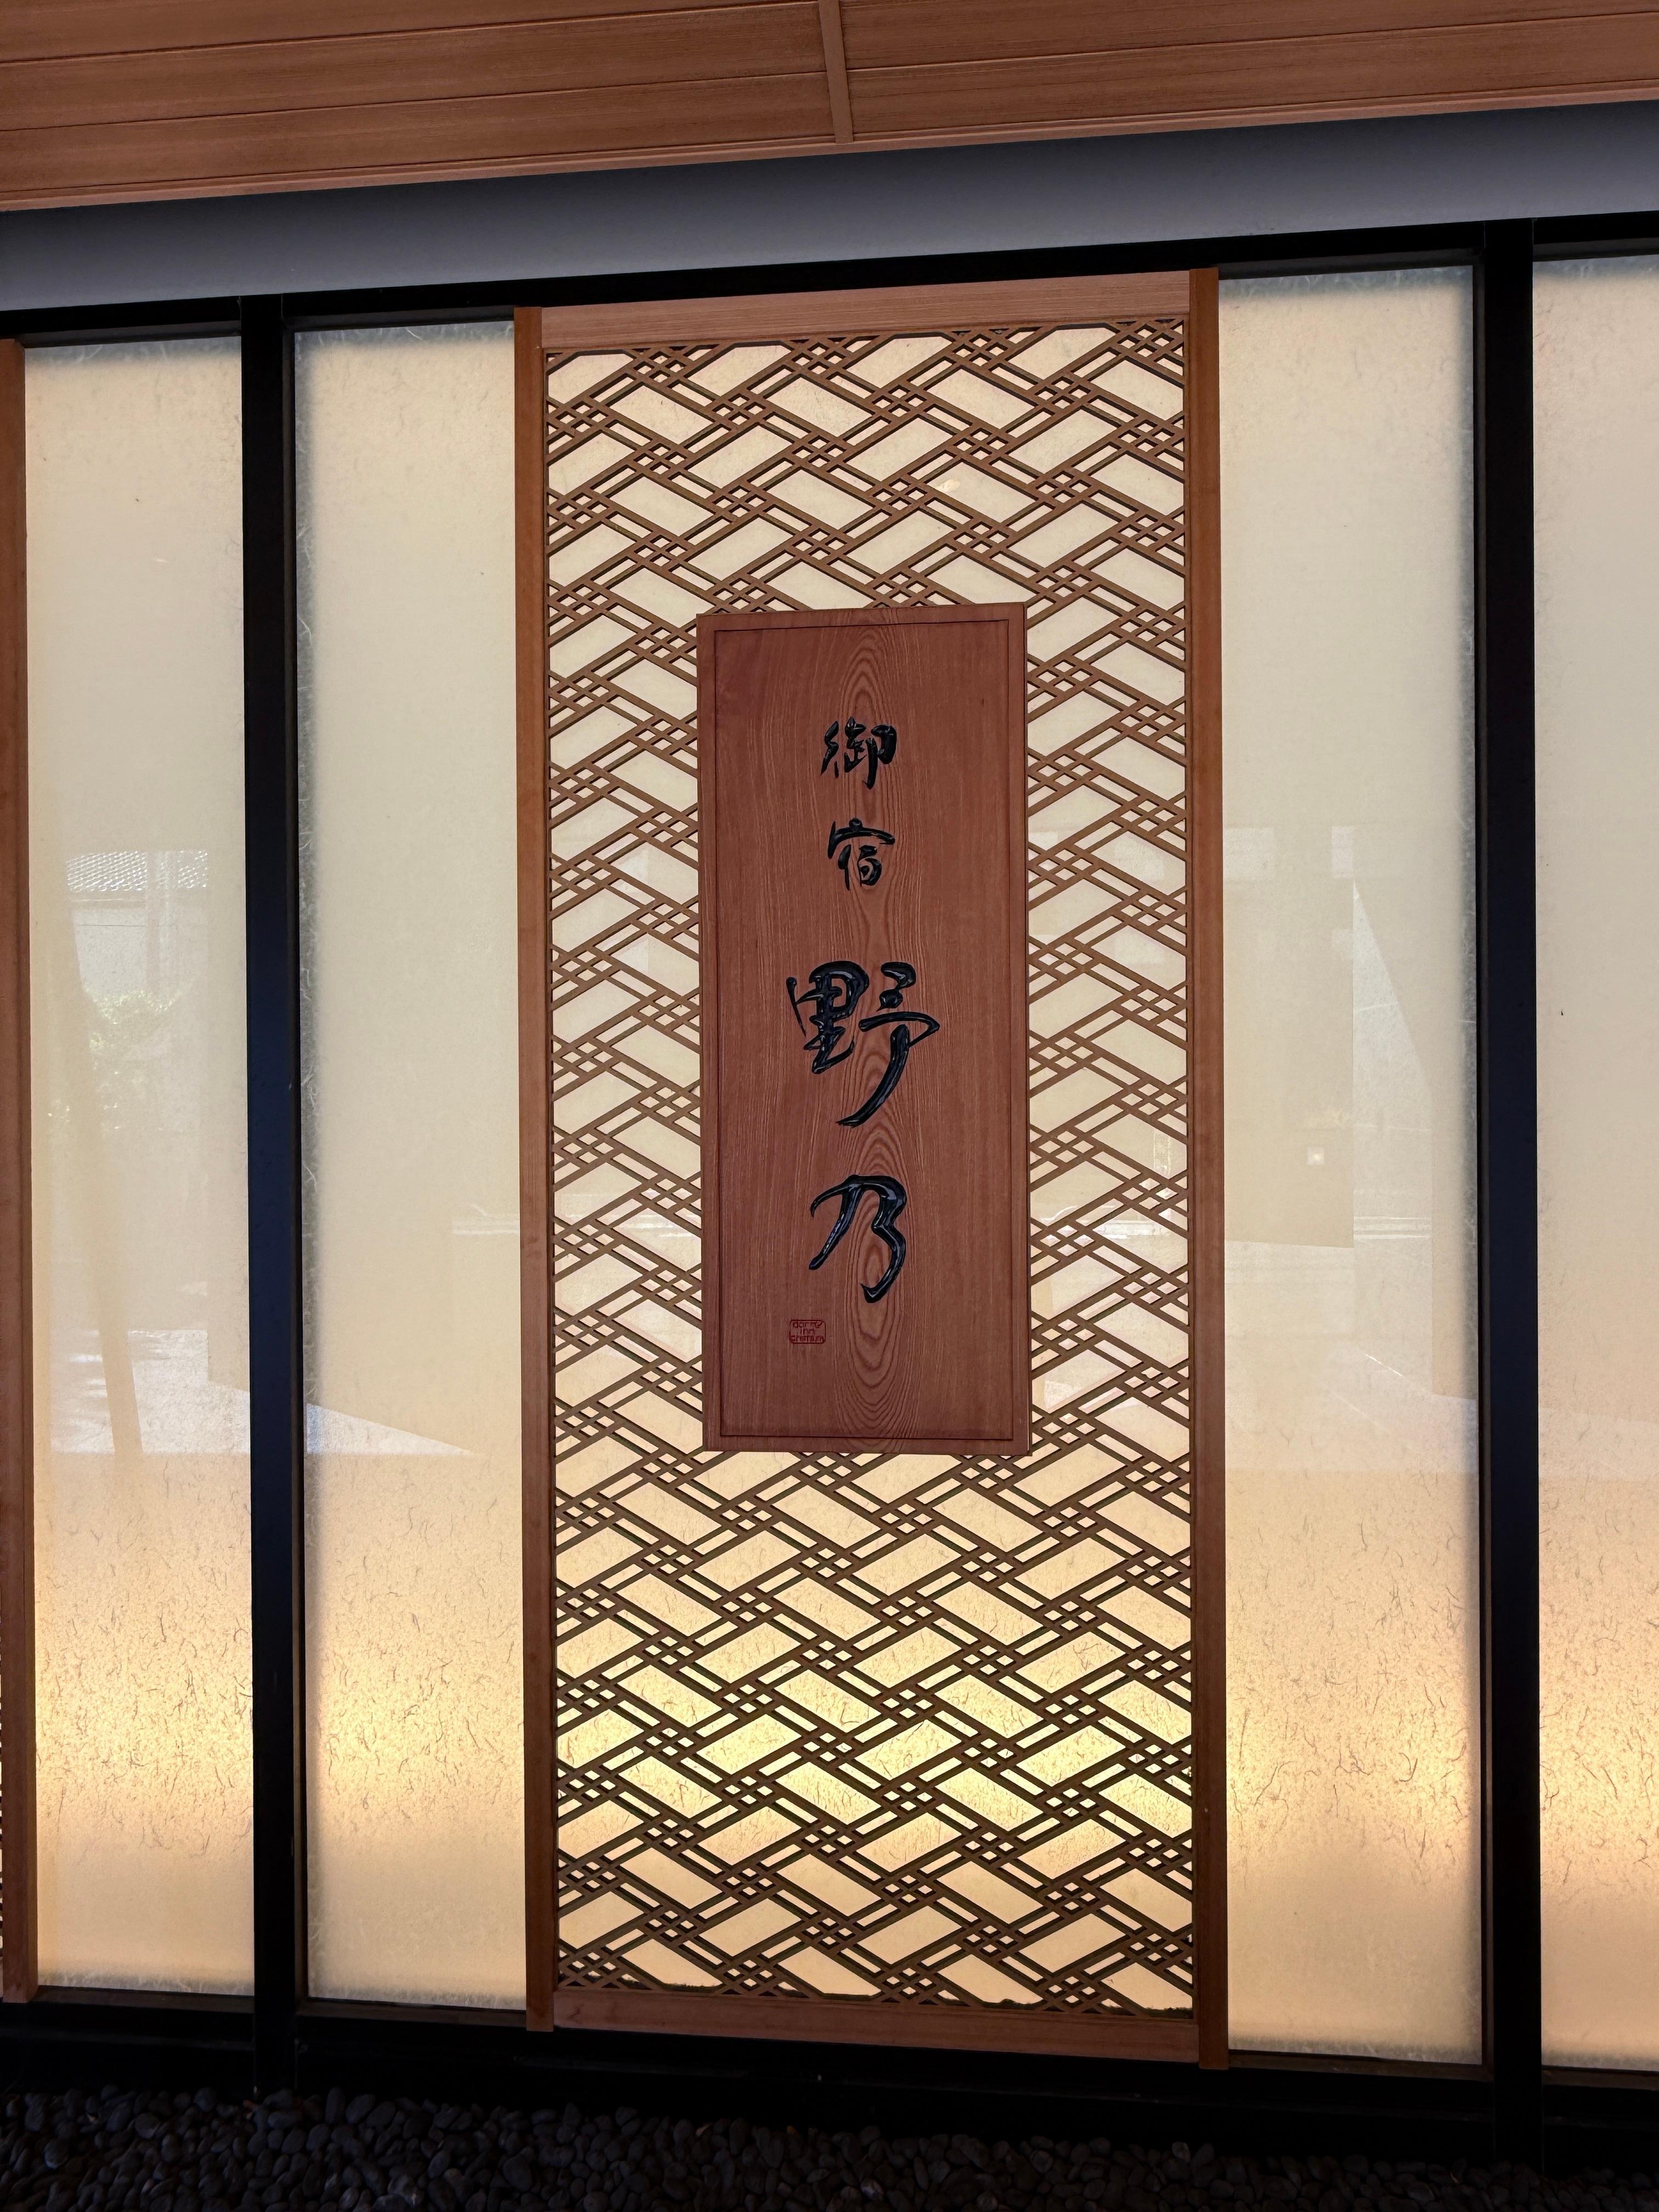 御宿
野乃
dormy
inn
premium